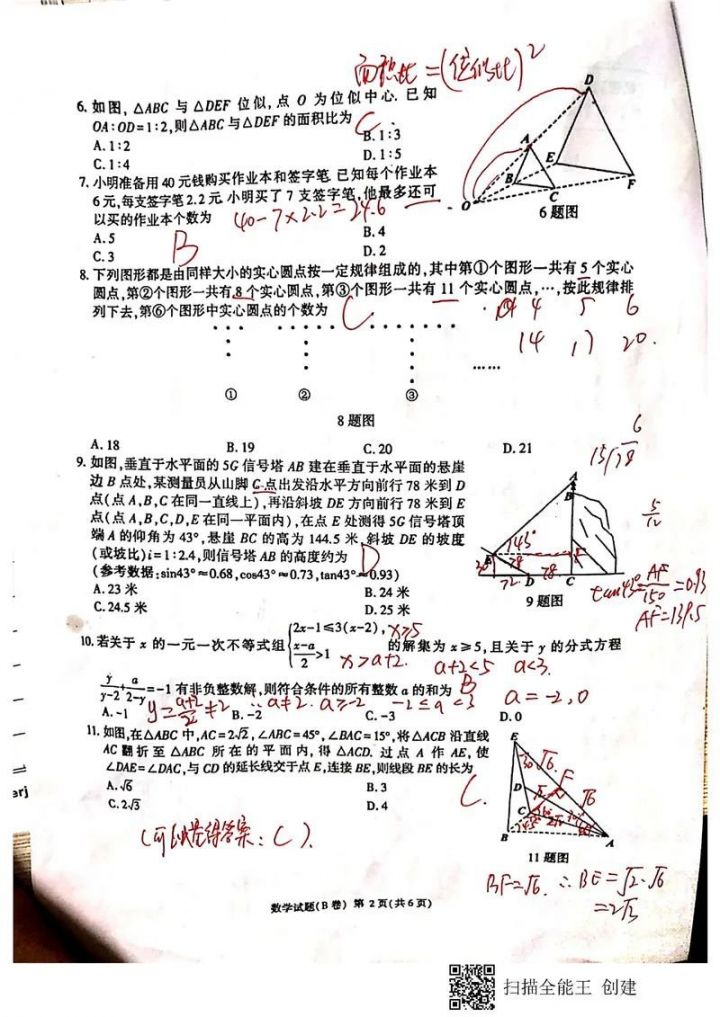 面积比=(位似比)²
6. 如图, △ABC 与 △DEF 位似, 点 O 为位似中心. 已知
OA:OD=1:2,则△ABC与△DEF的面积比为 C
A. 1:2 B. 1:3
C. 1:4 D. 1:5
D
A
E
B
C
F
O
6题图
7. 小明准备用40元钱购买作业本和签字笔.已知每个作业本
6元,每支签字笔2.2元.小明买了7支签字笔,他最多还可
以买的作业本个数为 40-7×2.2=24.6
A. 5 B. 4
B
C. 3 D. 2
8. 下列图形都是由同样大小的实心圆点按一定规律组成的,其中第①个图形一共有5个实心
圆点,第②个图形一共有8个实心圆点,第③个图形一共有11个实心圆点,…,按此规律排
列下去,第⑥个图形中实心圆点的个数为 C
4 5 6
14 17 20.
……
① ② ③
8题图
A. 18 B. 19 C. 20 D. 21
9. 如图,垂直于水平面的5G信号塔AB建在垂直于水平面的悬崖
边B点处,某测量员从山脚C点出发沿水平方向前行78米到D
点(点A,B,C在同一直线上),再沿斜坡DE方向前行78米到E
点(点A,B,C,D,E在同一平面内),在点E处测得5G信号塔顶
端A的仰角为43°,悬崖BC的高为144.5米,斜坡DE的坡度
(或坡比)i=1:2.4,则信号塔AB的高度约为 D
(参考数据:sin43°≈0.68,cos43°≈0.73,tan43°≈0.93)
A. 23米 B. 24米
C. 24.5米 D. 25米
6
13/78
5/12
A
B
43°
E
F
30
78
72 D 78 C
9题图
tan43°=AF/150=0.93
AF=139.5
10. 若关于x的一元一次不等式组{2x-1≤3(x-2), (x-a)/2>1 的解集为x≥5,且关于y的分式方程
x≥5
x>a+2. a+2<5 a<3.
y/(y-2)+a/(2-y)=-1有非负整数解,则符合条件的所有整数a的和为 B
y=(a+2)/2≠2 ∴a≠2. a≥-2 -2≤a<3 a=-2,0
A. -1 B. -2 C. -3 D. 0
11. 如图,在△ABC中,AC=2√2,∠ABC=45°,∠BAC=15°,将△ACB沿直线
AC翻折至△ABC所在的平面内,得△ACD.过点A作AE,使
∠DAE=∠DAC,与CD的延长线交于点E,连接BE,则线段BE的长为
C.
A. √6 B. 3
C. 2√3 D. 4
E
30
√6
F
D
√6
C
B
A
11题图
(可以量得答案:C).
BF=√6. ∴BE=√2·√6
=2√3
数学试题(B卷) 第2页(共6页)
扫描全能王 创建